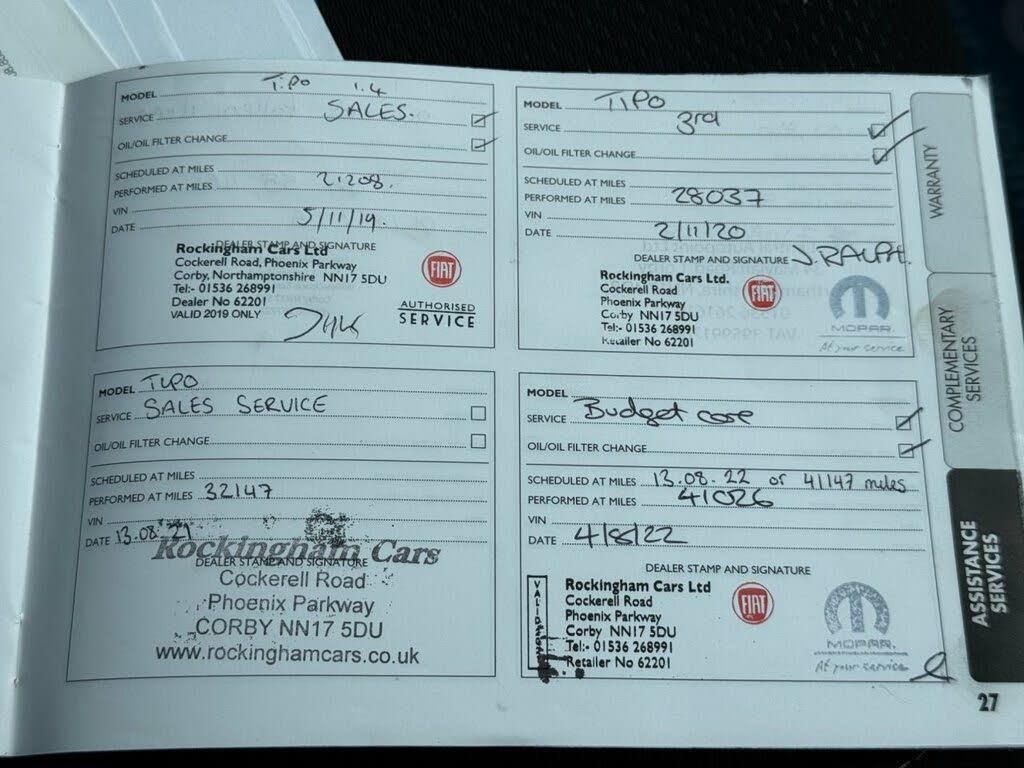 MODEL Tipo 1.4
SERVICE SALES.
OIL/OIL FILTER CHANGE
SCHEDULED AT MILES
PERFORMED AT MILES 21208.
VIN
DATE 5/11/19.
DEALER STAMP AND SIGNATURE
Rockingham Cars Ltd
Cockerell Road, Phoenix Parkway
Corby, Northamptonshire NN17 5DU
Tel:- 01536 268991
Dealer No 62201
VALID 2019 ONLY
FIAT
AUTHORISED
SERVICE
MODEL TIPO
SERVICE 3rd
OIL/OIL FILTER CHANGE
SCHEDULED AT MILES
PERFORMED AT MILES 28037
VIN
DATE 2/11/20
DEALER STAMP AND SIGNATURE J.RALPH.
Rockingham Cars Ltd.
Cockerell Road
Phoenix Parkway
Corby NN17 5DU
Tel:- 01536 268991
Retailer No 62201
FIAT
MOPAR
At your service
MODEL TIPO
SERVICE SALES SERVICE
OIL/OIL FILTER CHANGE
SCHEDULED AT MILES
PERFORMED AT MILES 32147
VIN
DATE 13.08.21
Rockingham Cars
DEALER STAMP AND SIGNATURE
Cockerell Road
Phoenix Parkway
CORBY NN17 5DU
www.rockinghamcars.co.uk
MODEL
SERVICE Budget core
OIL/OIL FILTER CHANGE
SCHEDULED AT MILES 13.08.22 or 41147 miles
PERFORMED AT MILES 41026
VIN
DATE 4/8/22
DEALER STAMP AND SIGNATURE
Rockingham Cars Ltd
Cockerell Road
Phoenix Parkway
Corby NN17 5DU
Tel:- 01536 268991
Retailer No 62201
FIAT
MOPAR
At your service
WARRANTY
COMPLEMENTARY
SERVICES
ASSISTANCE
SERVICES
27